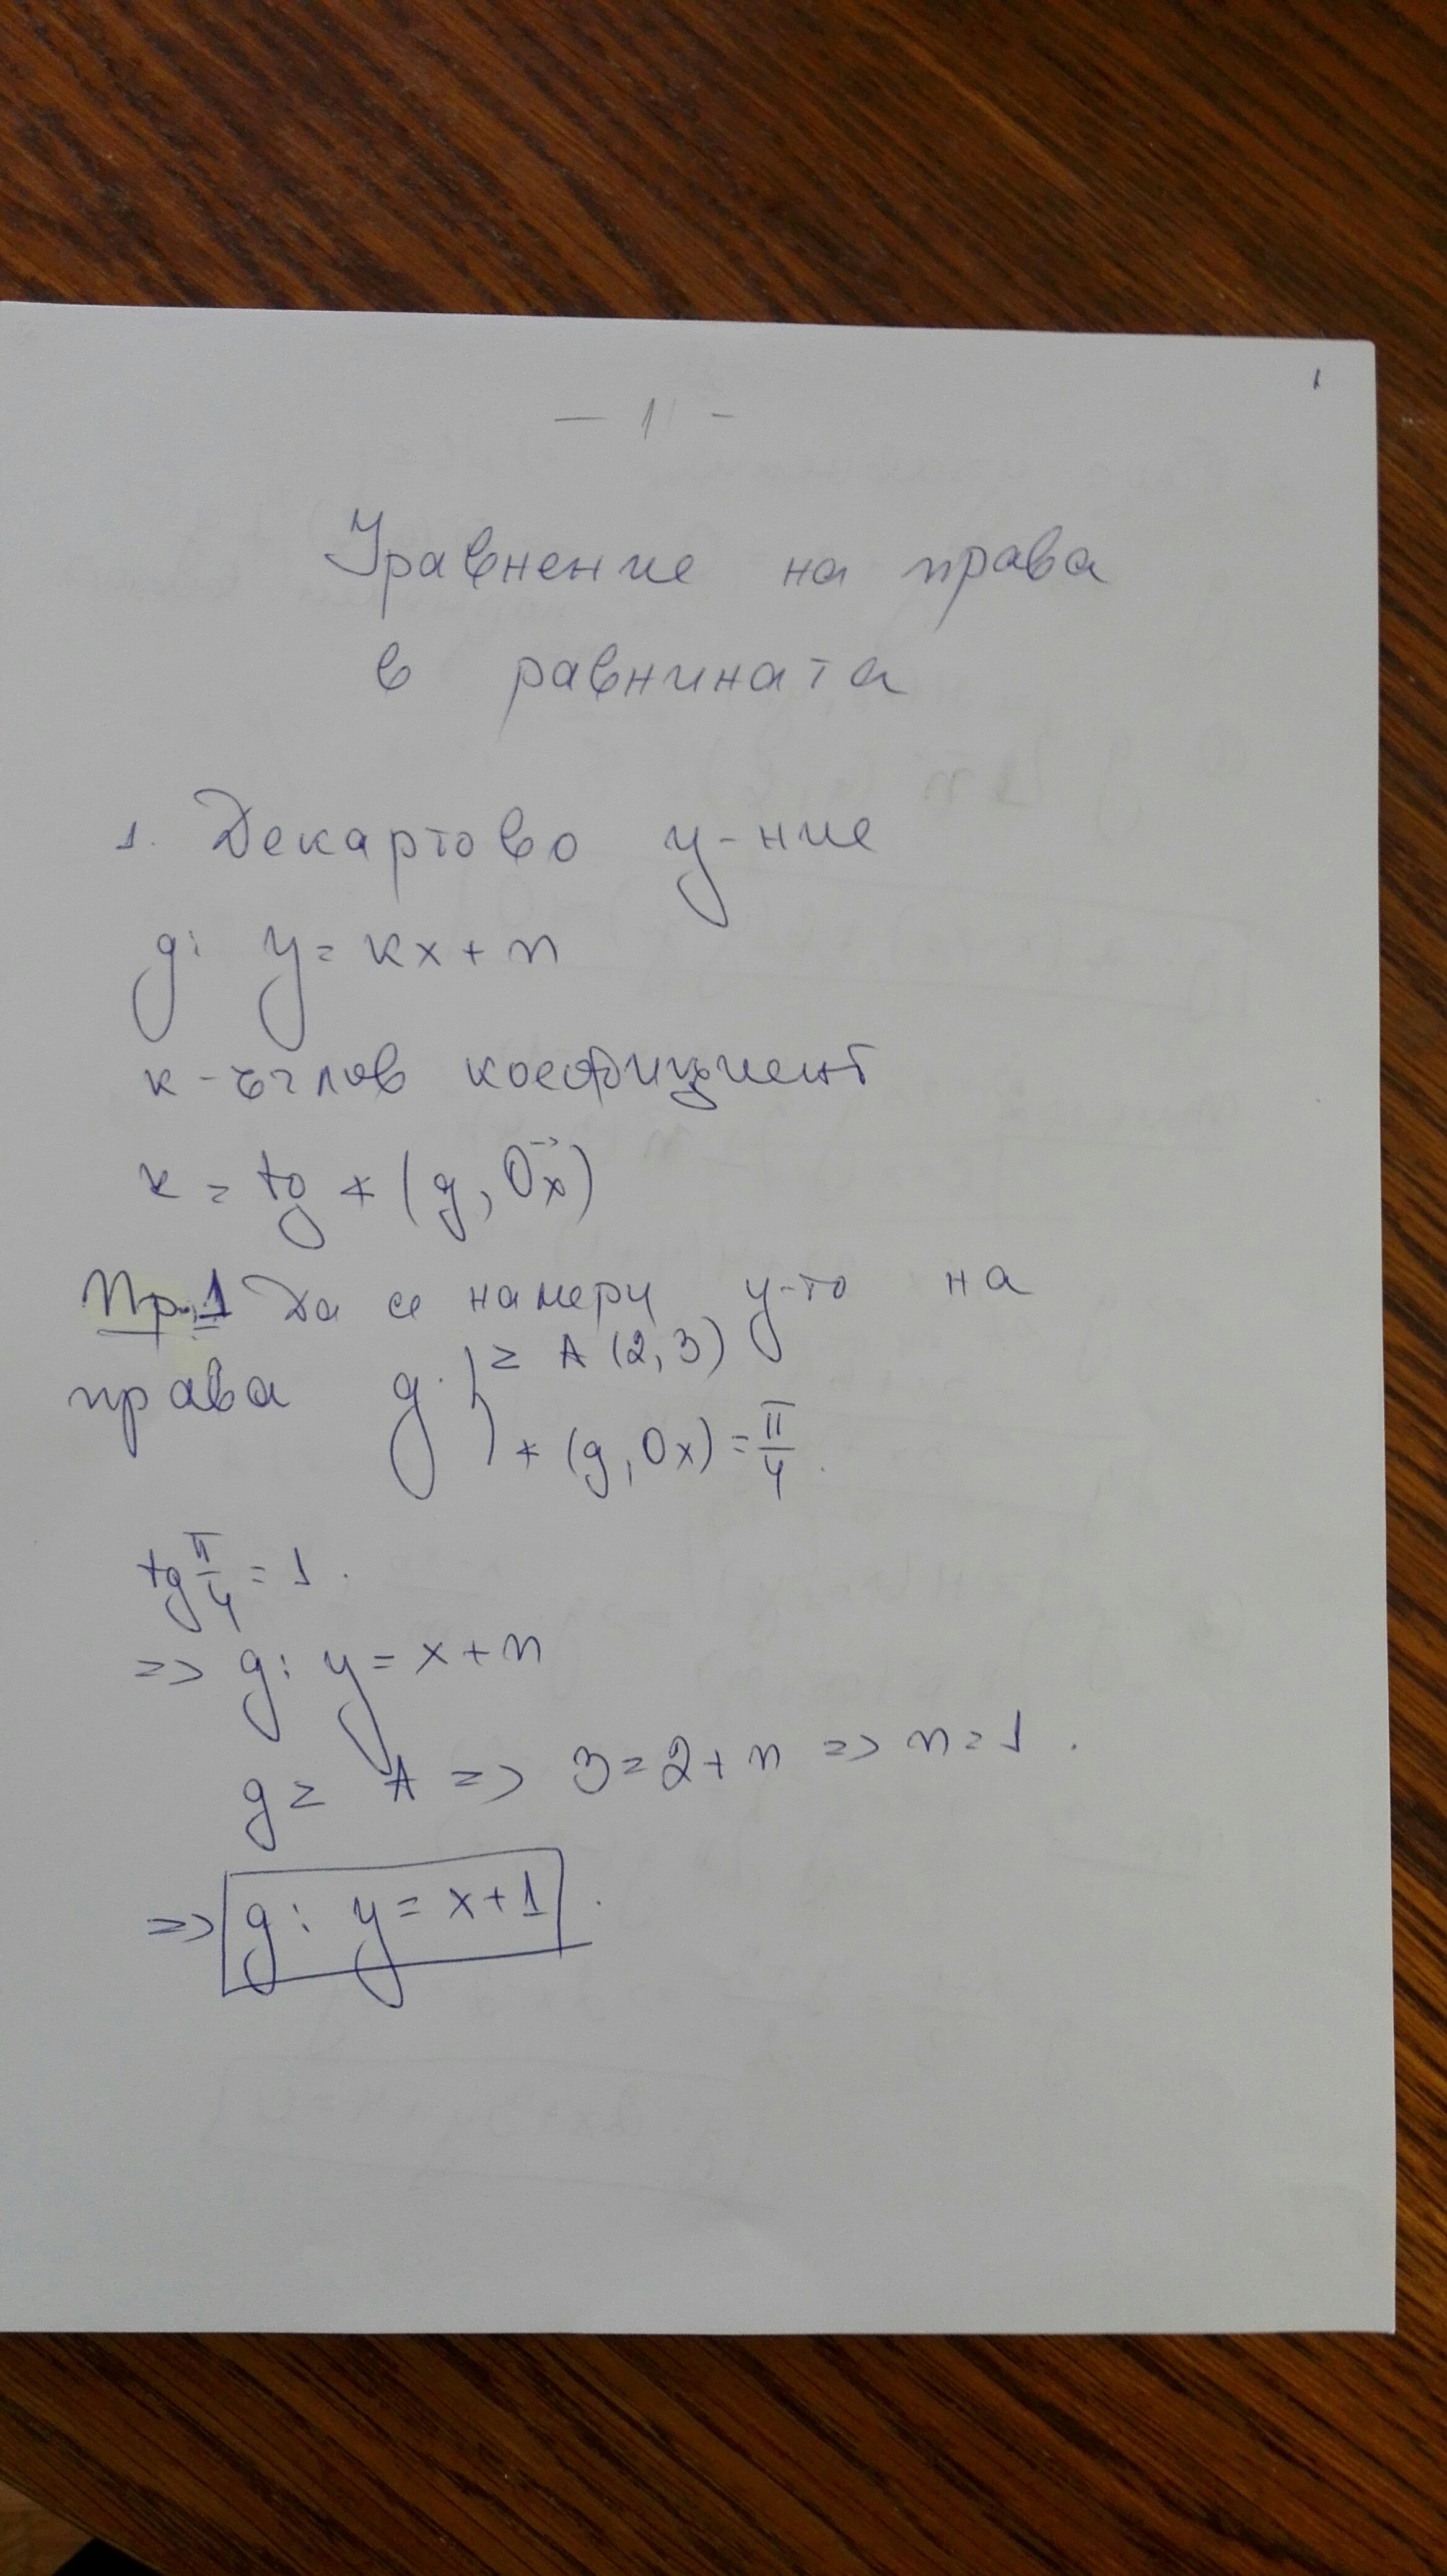 1
– 1 –
Уравнение на права
в равнината
1. Декартово у-ние
g: y = kx + n
k - ъглов коефициент
k = tg ∢ (g, Ox→)
Пр.1 Да се намери у-то на
права g: { ≥ A (2, 3)
∢ (g, Ox) = π/4.
tg π/4 = 1.
=> g: y = x + n
g ≥ A => 3 = 2 + n => n = 1.
=> g: y = x + 1.